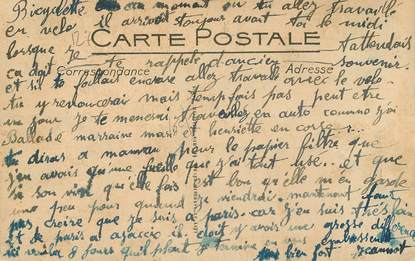 Bicyclette au moment ou tu allez travaillé
en velo il arrivait toujours avant toi le midi
lorsque je t'attendais
CARTE POSTALE
ça doit te rappelé d'ancien souvenir.
Correspondance Adresse
et s'il fallait encore allez travaillé avec le velo
tu y renoncerai mais temps fois pas peut être
un jour je te menerai travaillez en auto comme j'ai
Ballade marraine mami et henriette en corse...
tu diras a maman pour le papier filtre que
j'en avais qu'une feuille que j'ai tout use.. et que
si son vin qu'elle fais est bon qu'elle m'en garde
un peu pour quand je viendrai. maintenant faut
pas croire que je suis a paris. car j'en suis très loin
et de paris a ajaccio il doit y avoir une grosse différence
ici voila 8 jours qu'il pleut je termine en vous embrassant
bien fort Jeannot